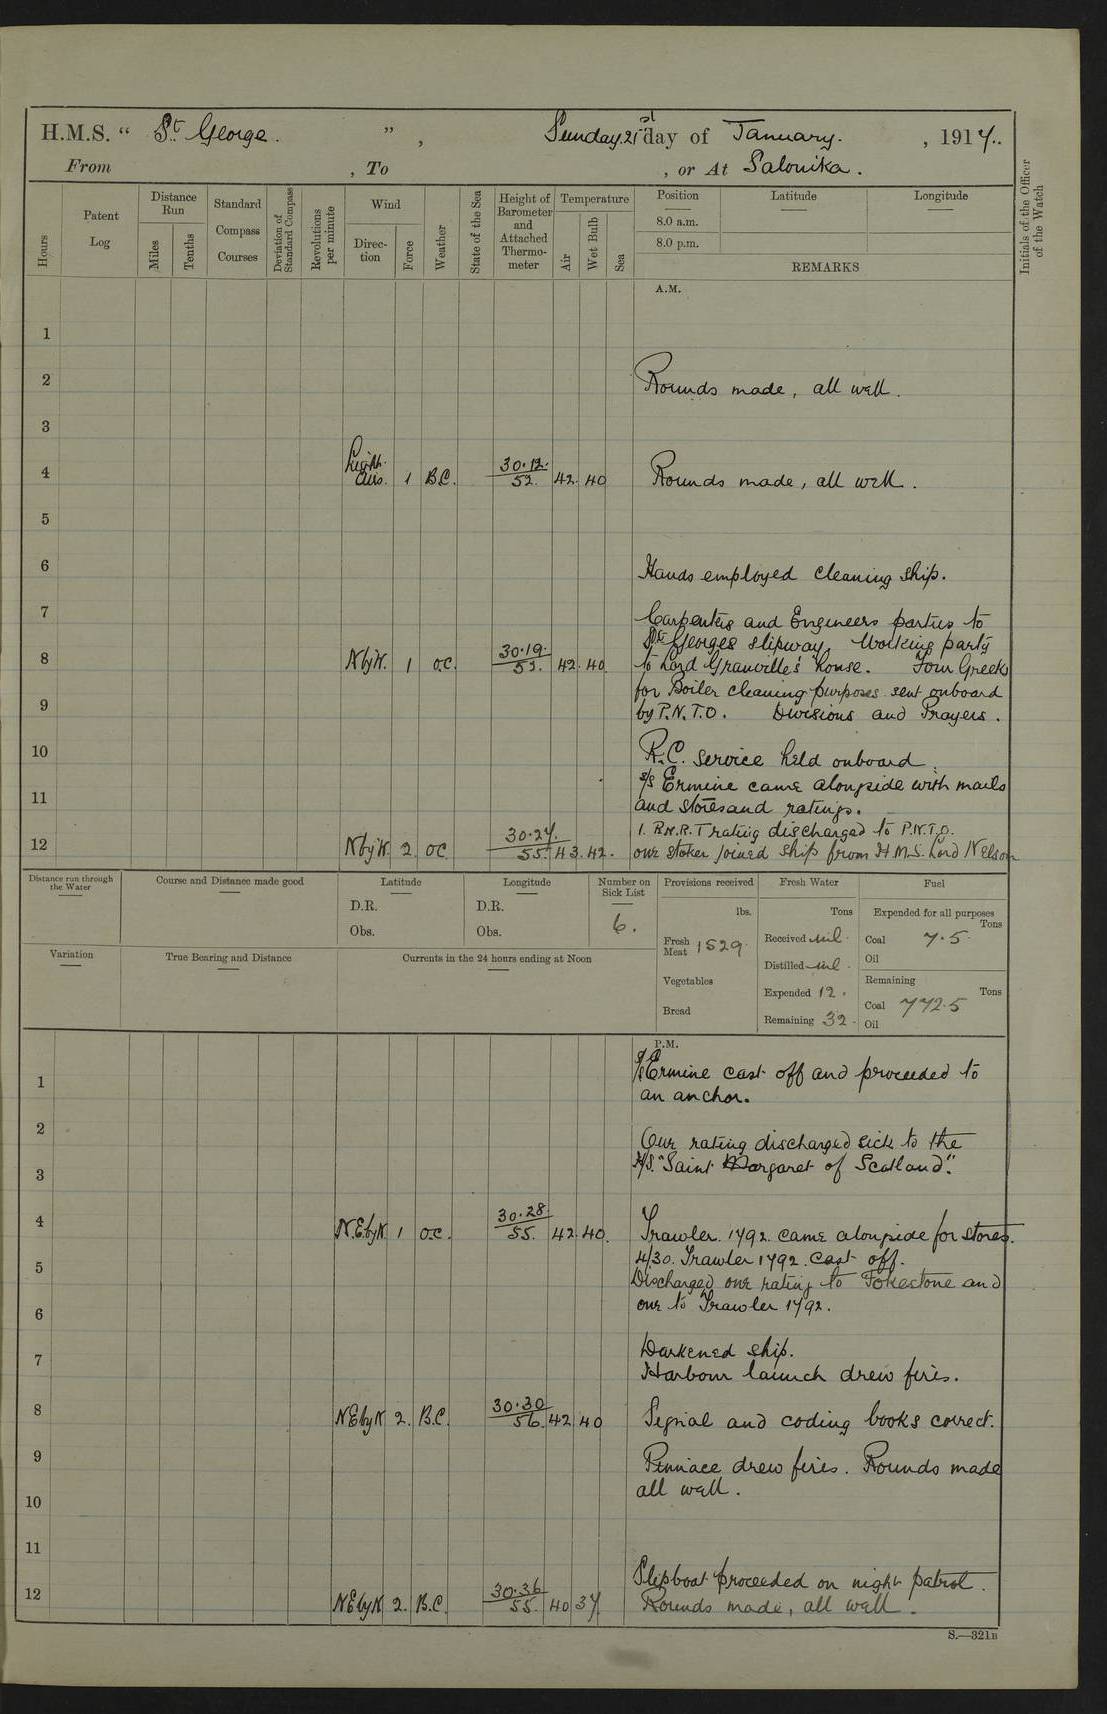 H.M.S. “ St George. ”, Sunday 21st day of January. , 1917.
From , To , or At Salonika.
Hours
Patent Log
Distance Run
Miles
Tenths
Standard Compass Courses
Deviation of Standard Compass
Revolutions per minute
Wind
Direc-tion
Force
Weather
State of the Sea
Height of Barometer and Attached Thermo-meter
Temperature
Air
Wet Bulb
Sea
Position
Latitude
Longitude
8.0 a.m.
8.0 p.m.
REMARKS
Initials of the Officer of the Watch
A.M.
1
2 Rounds made, all well.
3
4 Light airs. 1 B.C. 30.12. 52. 42. 40 Rounds made, all well.
5
6 Hands employed cleaning ship.
7 Carpenters and Engineers parties to
St Georges slipway. Working party
8 N by W. 1 o.c. 30.19. 52. 42. 40. to Lord Granville's house. Four Greeks
for Boiler cleaning purposes sent onboard
9 by P.N.T.O. Divisions and Prayers.
10 R.C. service held onboard.
s/s Ermine came alongside with mails
11 and stores and ratings.
1. R.N.R.T rating discharged to P.N.T.O.
12 N by W. 2 o.c. 30.27. 55. 43. 42. one stoker joined ship from H.M.S. Lord Nelson
Distance run through the Water
Course and Distance made good
Latitude
D.R.
Obs.
Longitude
D.R.
Obs.
Number on Sick List
6.
Provisions received
lbs.
Fresh Meat 1529.
Vegetables
Bread
Fresh Water
Tons
Received nil.
Distilled nil.
Expended 12.
Remaining 32.
Fuel
Expended for all purposes
Tons
Coal 7.5
Oil
Remaining
Tons
Coal 772.5
Oil
Variation
True Bearing and Distance
Currents in the 24 hours ending at Noon
P.M.
1 s/s Ermine cast off and proceeded to
an anchor.
2 One rating discharged sick to the
3 H/S. "Saint Margaret of Scotland".
4 N.E. by N. 1 o.c. 30.28 55. 42. 40. Trawler 1792 came alongside for stores.
4/30. Trawler 1792. cast off.
5 Discharged one rating to Fokestone and
6 one to Trawler 1792.
7 Darkened ship.
Harbour launch drew fires.
8 NE by N 2. B.C. 30.30 56. 42 40 Signal and coding books correct.
9 Pinnace drew fires. Rounds made
10 all well.
11
Slipboat proceeded on night patrol.
12 NE by N 2. B.C. 30.36 55. 40 37 Rounds made, all well.
S.—321B